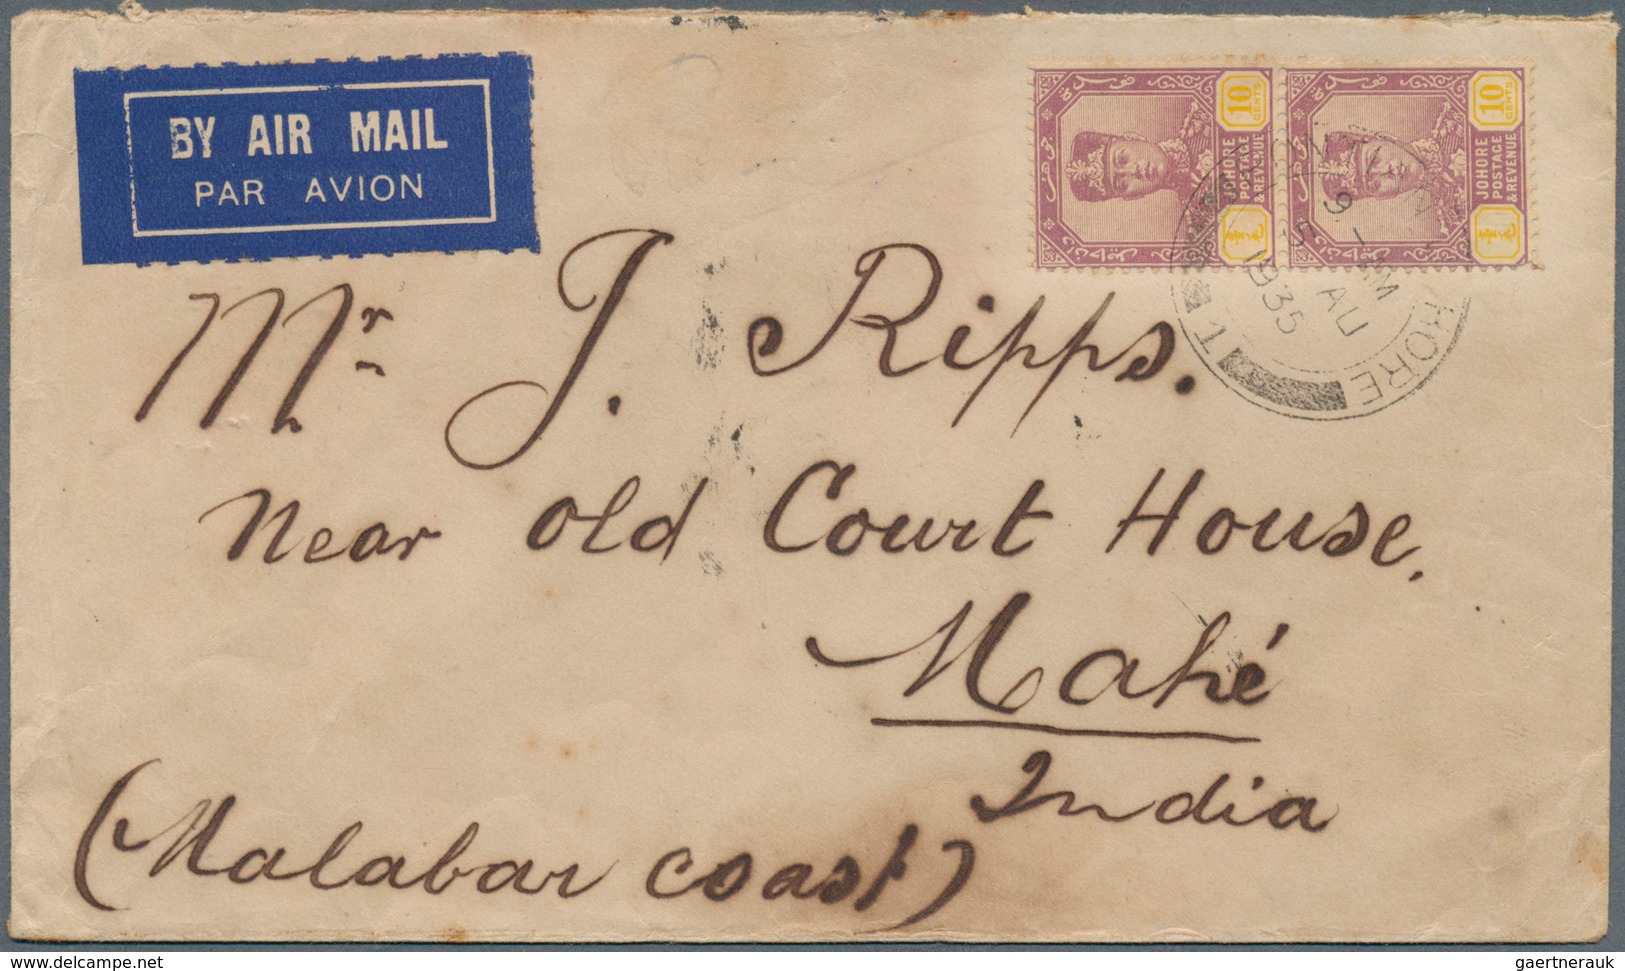 BY AIR MAIL
PAR AVION
10
CENTS
JOHORE
POSTAGE
& REVENUE
10
CENTS
JOHORE
POSTAGE
& REVENUE
PONTIAN
HORE
1
AU
1935
Mr J. Ripps.
Near old Court House,
Mahé
India
(Malabar coast)
www.delcampe.net
gaertnerauk